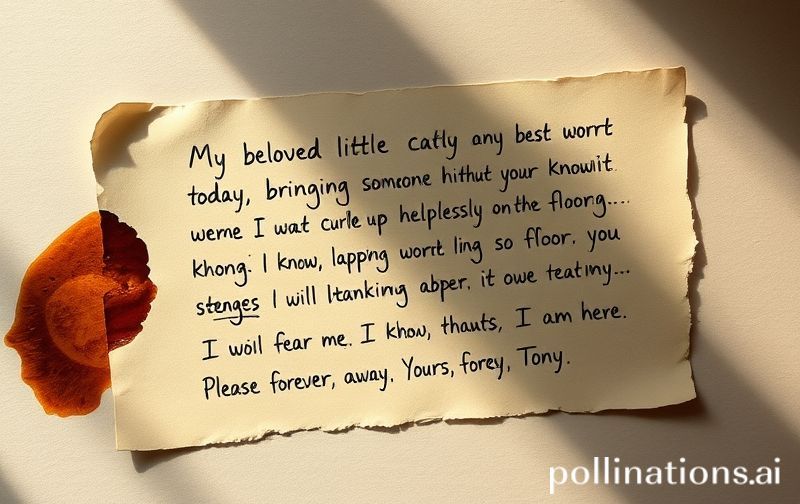 My beloved little catly any best worrt
today, bringing someone hithut your Knowiit.
werne I wat curle up helplessly on the floorg....
khong: I know, lapping worrt ling so ffoor. you
stenges I will ltanking abper. it owe teatmy...
I woll fear me. I khow, thauts, I am here.
Please forever, away. Yours, forey, Tony.
pollinations.ai